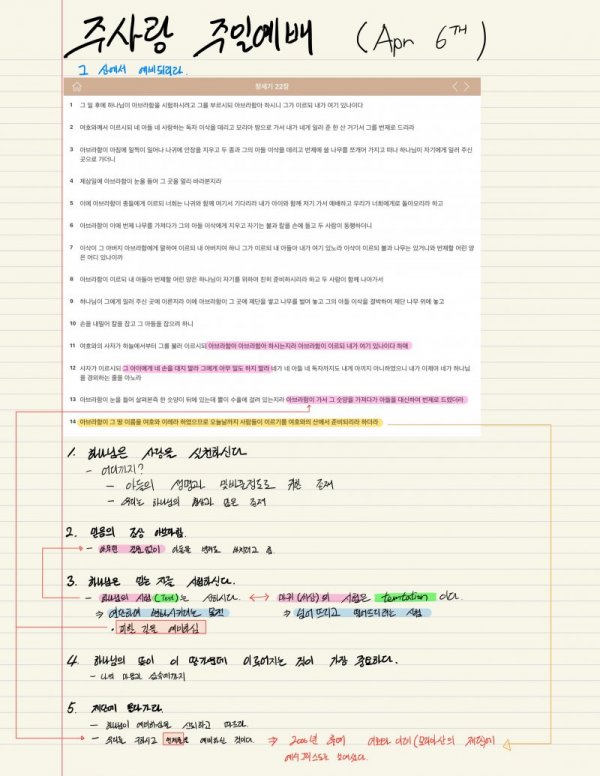 주사랑 주일예배 (Apr 6th)
그 산에서 예비되리라.
창세기 22장
1 그 일 후에 하나님이 아브라함을 시험하시려고 그를 부르시되 아브라함아 하시니 그가 이르되 내가 여기 있나이다
2 여호와께서 이르시되 네 아들 네 사랑하는 독자 이삭을 데리고 모리아 땅으로 가서 내가 네게 일러 준 한 산 거기서 그를 번제로 드리라
3 아브라함이 아침에 일찍이 일어나 나귀에 안장을 지우고 두 종과 그의 아들 이삭을 데리고 번제에 쓸 나무를 쪼개어 가지고 떠나 하나님이 자기에게 일러 주신
곳으로 가더니
4 제삼일에 아브라함이 눈을 들어 그 곳을 멀리 바라본지라
5 이에 아브라함이 종들에게 이르되 너희는 나귀와 함께 여기서 기다리라 내가 아이와 함께 저기 가서 예배하고 우리가 너희에게로 돌아오리라 하고
6 아브라함이 이에 번제 나무를 가져다가 그의 아들 이삭에게 지우고 자기는 불과 칼을 손에 들고 두 사람이 동행하더니
7 이삭이 그 아버지 아브라함에게 말하여 이르되 내 아버지여 하니 그가 이르되 내 아들아 내가 여기 있노라 이삭이 이르되 불과 나무는 있거니와 번제할 어린 양
은 어디 있나이까
8 아브라함이 이르되 내 아들아 번제할 어린 양은 하나님이 자기를 위하여 친히 준비하시리라 하고 두 사람이 함께 나아가서
9 하나님이 그에게 일러 주신 곳에 이른지라 이에 아브라함이 그 곳에 제단을 쌓고 나무를 벌여 놓고 그의 아들 이삭을 결박하여 제단 나무 위에 놓고
10 손을 내밀어 칼을 잡고 그 아들을 잡으려 하니
11 여호와의 사자가 하늘에서부터 그를 불러 이르시되 아브라함아 아브라함아 하시는지라 아브라함이 이르되 내가 여기 있나이다 하매
12 사자가 이르시되 그 아이에게 네 손을 대지 말라 그에게 아무 일도 하지 말라 네가 네 아들 네 독자까지도 내게 아끼지 아니하였으니 내가 이제야 네가 하나님
을 경외하는 줄을 아노라
13 아브라함이 눈을 들어 살펴본즉 한 숫양이 뒤에 있는데 뿔이 수풀에 걸려 있는지라 아브라함이 가서 그 숫양을 가져다가 아들을 대신하여 번제로 드렸더라
14 아브라함이 그 땅 이름을 여호와 이레라 하였으므로 오늘날까지 사람들이 이르기를 여호와의 산에서 준비되리라 하더라
1. 하나님은 사랑을 실천하신다
- 어디까지?
- 아들의 생명과 맞바꿀정도로 귀한 존재
- 우리는 하나님의 형상과 닮은 존재
2. 믿음의 조상 아브라함.
- 아무런 갈등없이 아들을 번제로 바치려고 함.
3. 하나님은 믿는 자를 시험하신다.
- 하나님의 시험(Test)는 선하시다. ↔ 마귀(사탄)의 시험은 temtation 이다.
⇒ 연단하여 변화시키려는 목적 ⇒ 넘어뜨리고 떨어뜨리려는 시험
• 피할 길을 예비하심
4. 하나님의 뜻이 이 땅가운데 이루어지는 것이 가장 중요하다.
- 나의 마음과 심속에까지
5. 제단에 올라가다.
- 하나님이 예비하심을 신뢰하고 따르라.
- 우리를 구하시고 예비하신 것이다. ⇒ 2000년 후에 여호와 이레(모리아산의 제단)에
예수그리스도로 보여졌다.